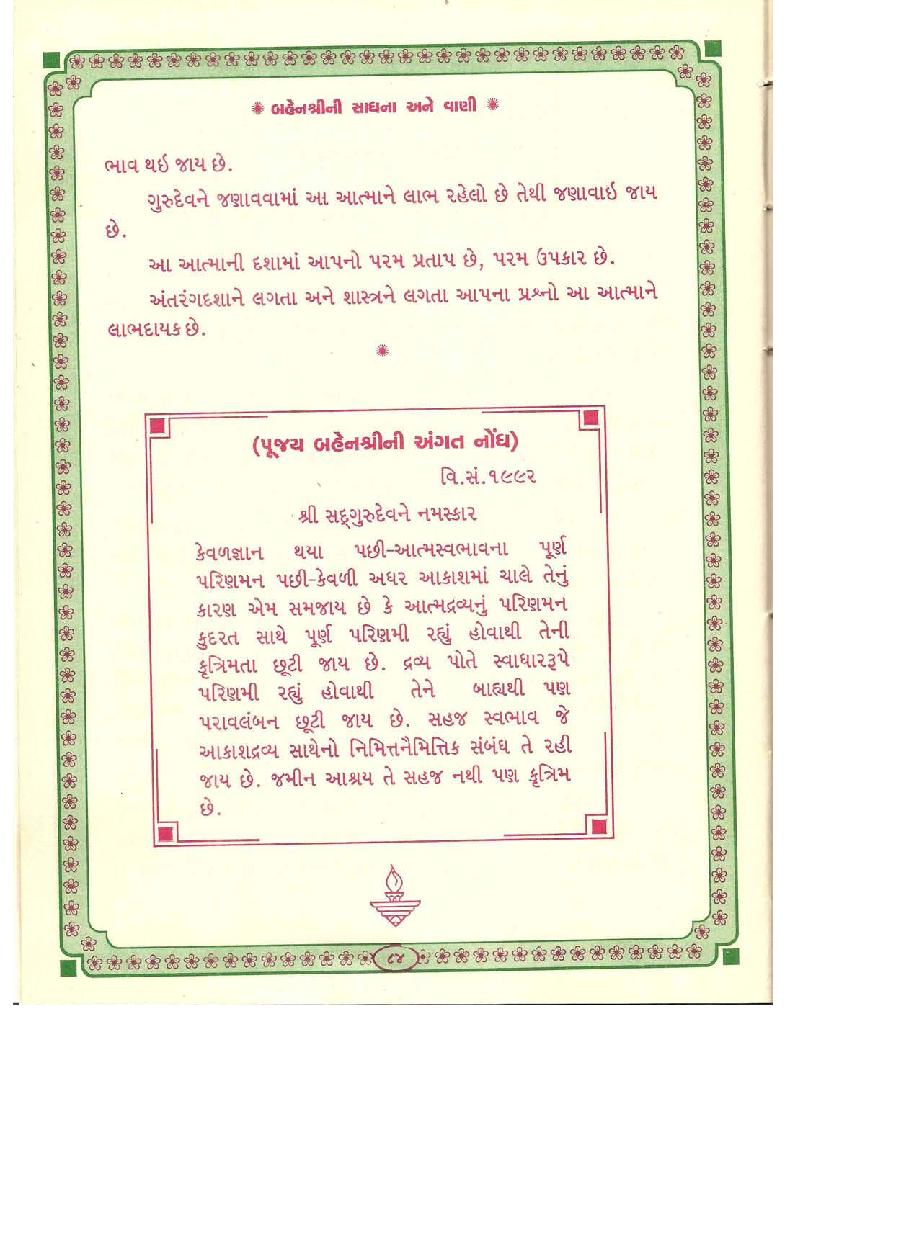 ✺ બહેનશ્રીની સાધના અને વાણી ✺
ભાવ થઇ જાય છે.
ગુરુદેવને જણાવવામાં આ આત્માને લાભ રહેલો છે તેથી જણાવાઇ જાય
છે.
આ આત્માની દશામાં આપનો પરમ પ્રતાપ છે, પરમ ઉપકાર છે.
અંતરંગદશાને લગતા અને શાસ્ત્રને લગતા આપના પ્રશ્નો આ આત્માને
લાભદાયક છે.
✺
(પૂજય બહેનશ્રીની અંગત નોંધ)
વિ.સં.૧૯૯૨
શ્રી સદ્ગુરુદેવને નમસ્કાર
કેવળજ્ઞાન થયા પછી-આત્મસ્વભાવના પૂર્ણ
પરિણમન પછી-કેવળી અધર આકાશમાં ચાલે તેનું
કારણ એમ સમજાય છે કે આત્મદ્રવ્યનું પરિણમન
કુદરત સાથે પૂર્ણ પરિણમી રહ્યું હોવાથી તેની
કૃત્રિમતા છૂટી જાય છે. દ્રવ્ય પોતે સ્વાધારરૂપે
પરિણમી રહ્યું હોવાથી તેને બાહ્યથી પણ
પરાવલંબન છૂટી જાય છે. સહજ સ્વભાવ જે
આકાશદ્રવ્ય સાથેનો નિમિત્તનૈમિત્તિક સંબંધ તે રહી
જાય છે. જમીન આશ્રય તે સહજ નથી પણ કૃત્રિમ
છે.
૮૪